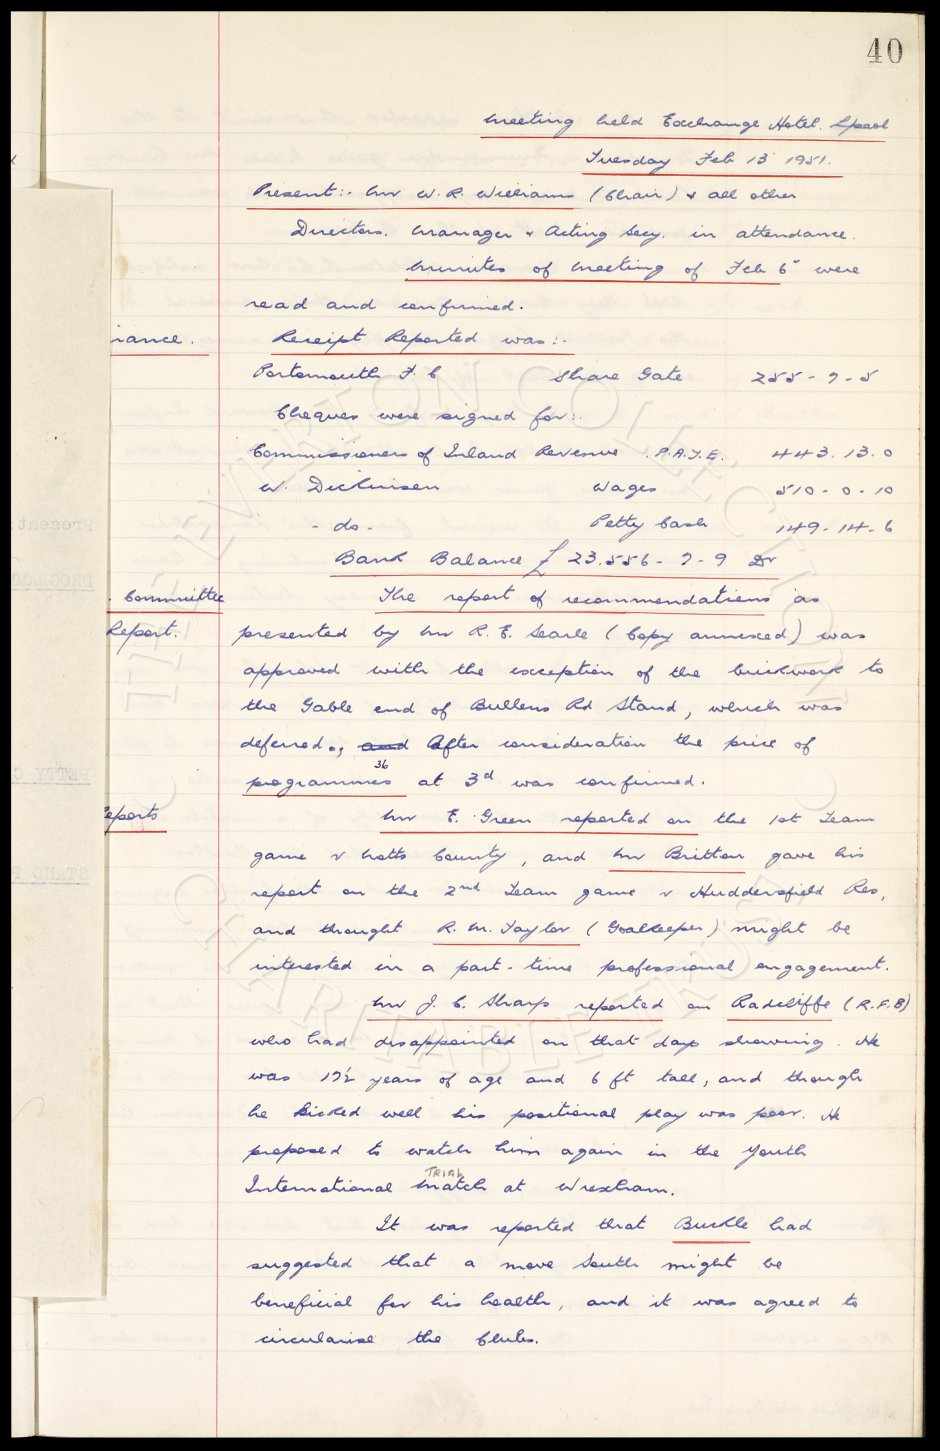 40
Meeting held Exchange Hotel. Lpool
Tuesday Feb 13 1951.
Present:- Mr W. R. Williams (Chair) & all other
Directors. Manager & Acting Secy. in attendance.
Minutes of Meeting of Feb 6" were
read and confirmed.
iance. Receipt Reported was:-
Portsmouth F. C Share Gate 255-7-5
Cheques were signed for:-
Commissioners of Inland Revenue .P.A.Y.E. 443.13.0
W. Dickinson Wages 510-0-10
- do - Petty Cash 149-14-6
Bank Balance £ 23.556-7-9 Dr
. Committee The report of recommendations as
Report. presented by Mr R. E. Searle (Copy annexed) was
approved with the exception of the brickwork to
the Gable end of Bullens Rd Stand, which was
deferred., and After consideration the price of
36
programmes at 3d was confirmed.
eports Mr E. Green reported on the 1st Team
game v Notts County, and Mr Britton gave his
report on the 2nd Team game v Huddersfield Res,
and thought R. M. Taylor (Goalkeeper) might be
interested in a part-time professional engagement.
Mr J. C. Sharp reported on Radcliffe (R.F.B)
who had disappointed on that days showing. He
was 17½ years of age and 6 ft tall, and though
he kicked well his positional play was poor. He
proposed to watch him again in the Youth
TRIAL
International Match at Wrexham.
It was reported that Buckle had
suggested that a move South might be
beneficial for his health, and it was agreed to
circularise the Clubs.
THE EVERTON COLLECTION
CHARITABLE TRUST